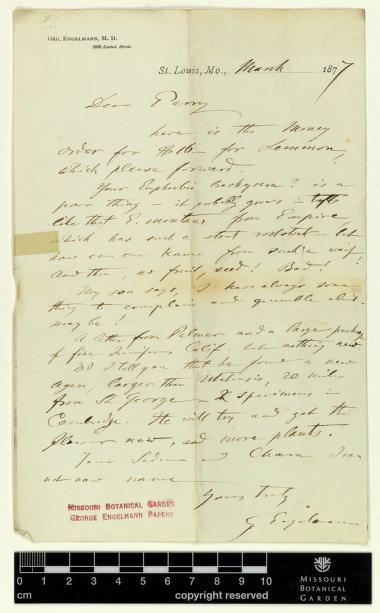 GEO. ENGELMANN, M. D.
St. Louis, Mo., March 1877
Dear Parry
here is the Money
order for $16 — for Lemmon,
which please forward.
Your Euphorbia ? is a
poor thing — it probably grows in tufts
like that E. montana from Empire
which has such a stout rootstock — but
how can one know from such a waif!
And then, no fruit, seed! Bad!
My son says, I have always some
thing to complain and grumble about.
may be!
A letter from Palmer and a large package
of fine Junipers Calif. but nothing new
Did I tell you that he found a new
Agave, larger than Utahensis, 20 miles
from St George — 2 specimens in
Cambridge. He will try and get the
flower now, and more plants.
Your Sedum I can
not now name
Yours truly
G Engelmann
MISSOURI BOTANICAL GARDEN
GEORGE ENGELMANN PAPERS
0 1 2 3 4 5 6 7 8 9 10
cm copyright reserved
MISSOURI
BOTANICAL
GARDEN